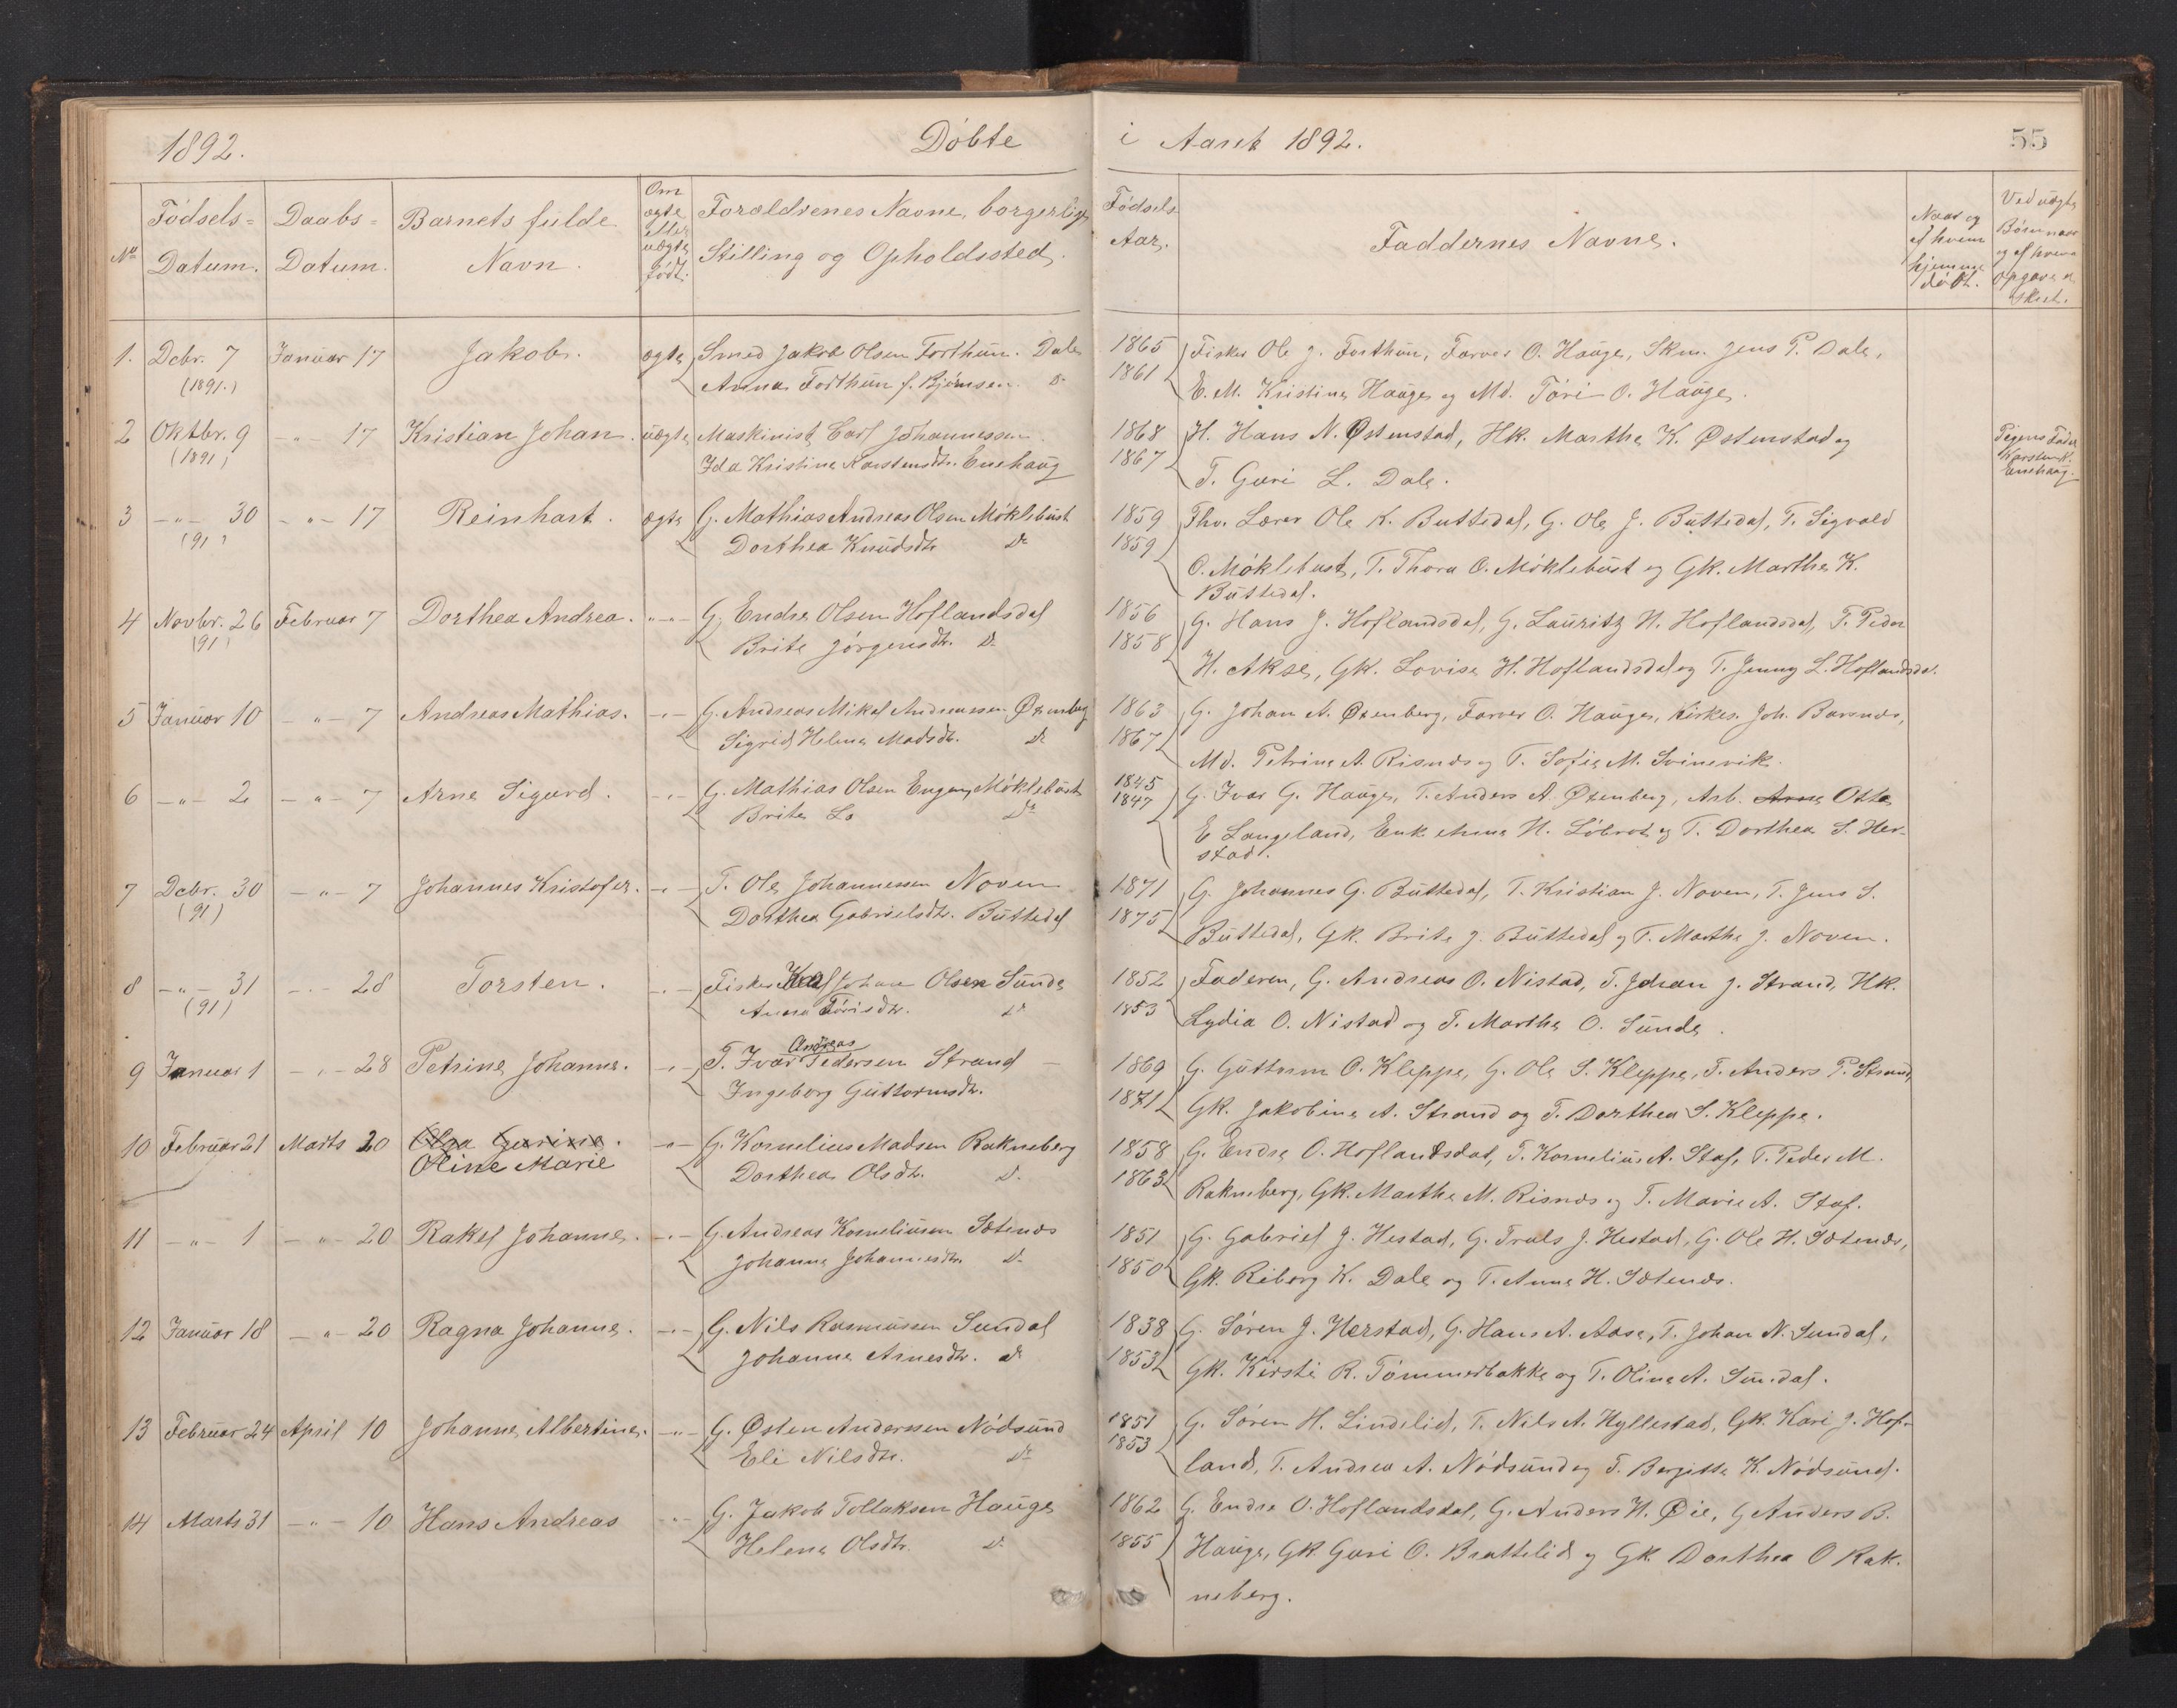 1892. Døbte i Aaret 1892. 55
No Fødsels= Datum. Daabs= Datum. Barnets fulde Navn. Om ægte eller uægte født. Forældrenes Navne, borgerlige Stilling og Opholdssted. Fødsels Aar. Faddernes Navne. Naar og af hvem hjemme døbt. Ved uægte Børn naar og af hvem Opgave er skeet.
1. Dcbr. 7 Januar 17 Jakob. ægte Smed Jakob Olsen Forthun. Dale 1865 Fisker Ole J. Forthun, Farver O. Hauge, Skm. Jens P. Dale,
(1891.) Anna Forthun f. Bjørnsen. do 1861 E. M. Kristine Hauge og Md. Tøri O. Hauge.
2 Oktbr. 9 -"- 17 Kristian Johan. uægte Maskinist Carl Johannessen 1868 H. Hans N. Østenstad, Hk. Marthe K. Østenstad og Pigens Fader
(1891) Ida Kristine Karstensdtr. Enehaug 1867 T. Guri L. Dale. Karsten Enehaug.
3 -"- 30 -"- 17 Reinhart. ægte G. Mathias Andreas Olsen Møklebust 1859 Fhv. Lærer Ole K. Buttedal, G. Ole J. Buttedal, T. Sigvald
(91) Dorthea Knudsdtr do 1859 O. Møklebust, T. Thora O. Møklebust og Gk. Marthe K.
Buttedal.
4 Novbr. 26 Februar 7 Dorthea Andrea. -"- G. Endre Olsen Hoflandsdal 1856 G. Hans J. Hoflandsdal, G. Lauritz H. Hoflandsdal, T. Peder
(91) Brite Jørgensdtr. do 1858 H. Akse, Gk. Lovise H. Hoflandsdal og T. Jenny L. Hoflandsdal.
5 Januar 10 -"- 7 Andreas Mathias. -"- G. Andreas Mikal Andreassen Øxenberg 1863 G. Johan A. Øxenberg, Farver O. Hauge, Kirkes. Joh. Barsnæs,
Sigrid Helene Madsdtr. do 1867 Md. Petrine A. Risnæs og T. Sofie M. Svinevik.
6 -"- 2 -"- 7 Arne Sigurd. -"- G. Mathias Olsen Engen, Møklebust 1845 G. Ivar G. Hauge, T. Anders A. Øxenberg, Arb. Arne Otto
Brite Lo do 1847 E Langeland, Enk H. Løbrot og T. Dorthea S. Her-
stad.
7 Dcbr. 30 -"- 7 Johannes Kristofer. -"- T. Ole Johannessen Noven 1871 G. Johannes G. Buttedal, T. Kristian J. Noven, T. Jens S.
(91) Dorthea Gabrielsdtr. Buttedal 1875 Buttedal, Gk. Brite J. Buttedal og T. Marthe J. Noven.
8 -"- 31 -"- 28 Torsten. -"- Fisker Karl Johan Olsen Sunde 1852 Faderen, G. Andreas O. Nistad, T. Johan J. Strand, Hk.
(91) Anna Tørisdtr. do 1853 Lydia O. Nistad og T. Marthe O. Sunde.
9 Januar 1 -"- 28 Petrine Johanne. -"- T. Ivar Andreas Pedersen Strand 1869 G. Guttorm O. Kleppe, G. Ole S. Kleppe, T. Anders P. Strand,
Ingeborg Guttormsdtr. 1871 Gk. Jakobine A. Strand og T. Dorthea S. Kleppe.
10 Februar 21 Marts 20 Olga Gurine. -"- G. Kornelius Madsen Rakneberg 1858 G. Endre O. Hoflandsdal, T. Kornelius A. Staf, T. Peder M.
Oline Marie Dorthea Olsdtr. do 1863 Rakneberg, Gk. Marthe M. Risnæs og T. Marie A. Staf.
11 -"- 1 -"- 20 Rakel Johanne. -"- G. Andreas Korneliussen Sætenæs 1851 G. Gabriel J. Hestad, G. Truls J. Hestad, G. Ole H. Sætenæs,
Johanne Johannesdtr. do 1850 Gk. Riborg K. Dale og T. Anne H. Sætenæs.
12 Januar 18 -"- 20 Ragna Johanne. -"- G. Nils Rasmussen Sundal 1838 G. Søren J. Herstad, G. Hans A. Aase, T. Johan N. Sundal,
Johanne Arnesdtr. do 1853 Gk. Kirsti R. Tømmerbakke og T. Oline A. Sundal.
13 Februar 24 April 10 Johanne Albertine. -"- G. Østen Anderssen Nødsund 1851 G. Søren H. Lindelid, T. Nils A. Hyllestad, Gk. Kari J. Hof-
Eli Nilsdtr. do 1853 land, T. Andrea A. Nødsund og T. Bergitte K. Nødsund.
14 Marts 31 -"- 10 Hans Andreas -"- G. Jakob Tollaksen Hauge 1862 G. Endre O. Hoflandsdal, G. Anders H. Øie, G Anders B.
Helene Olsdtr. do 1855 Hauge, Gk Guri O. Brattelid og Gk Dorthea O Rak-
neberg.